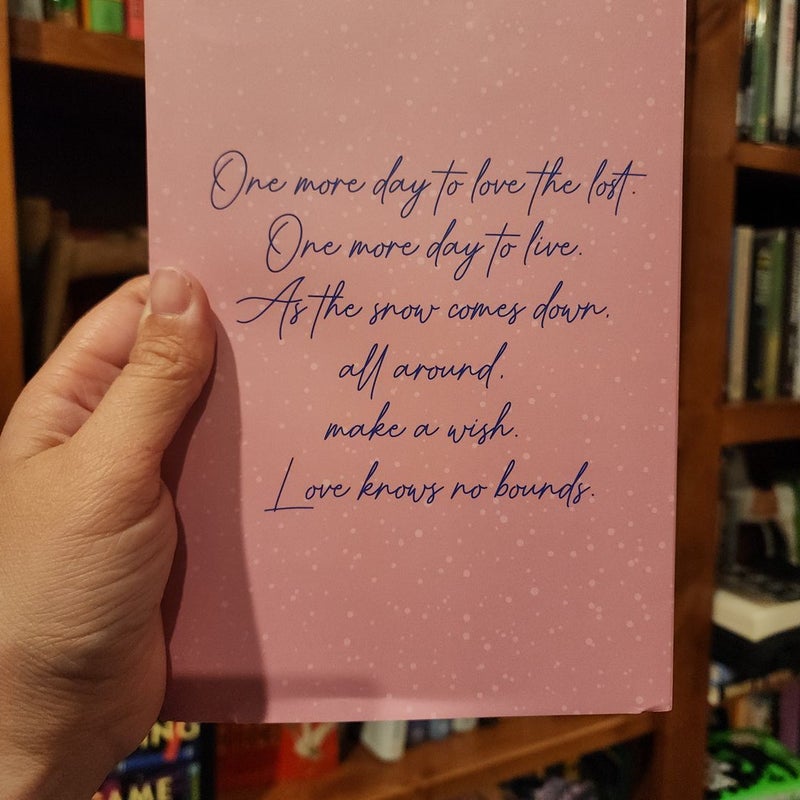 One more day to love the lost.
One more day to live.
As the snow comes down.
all around.
make a wish.
Love knows no bounds.
GAME